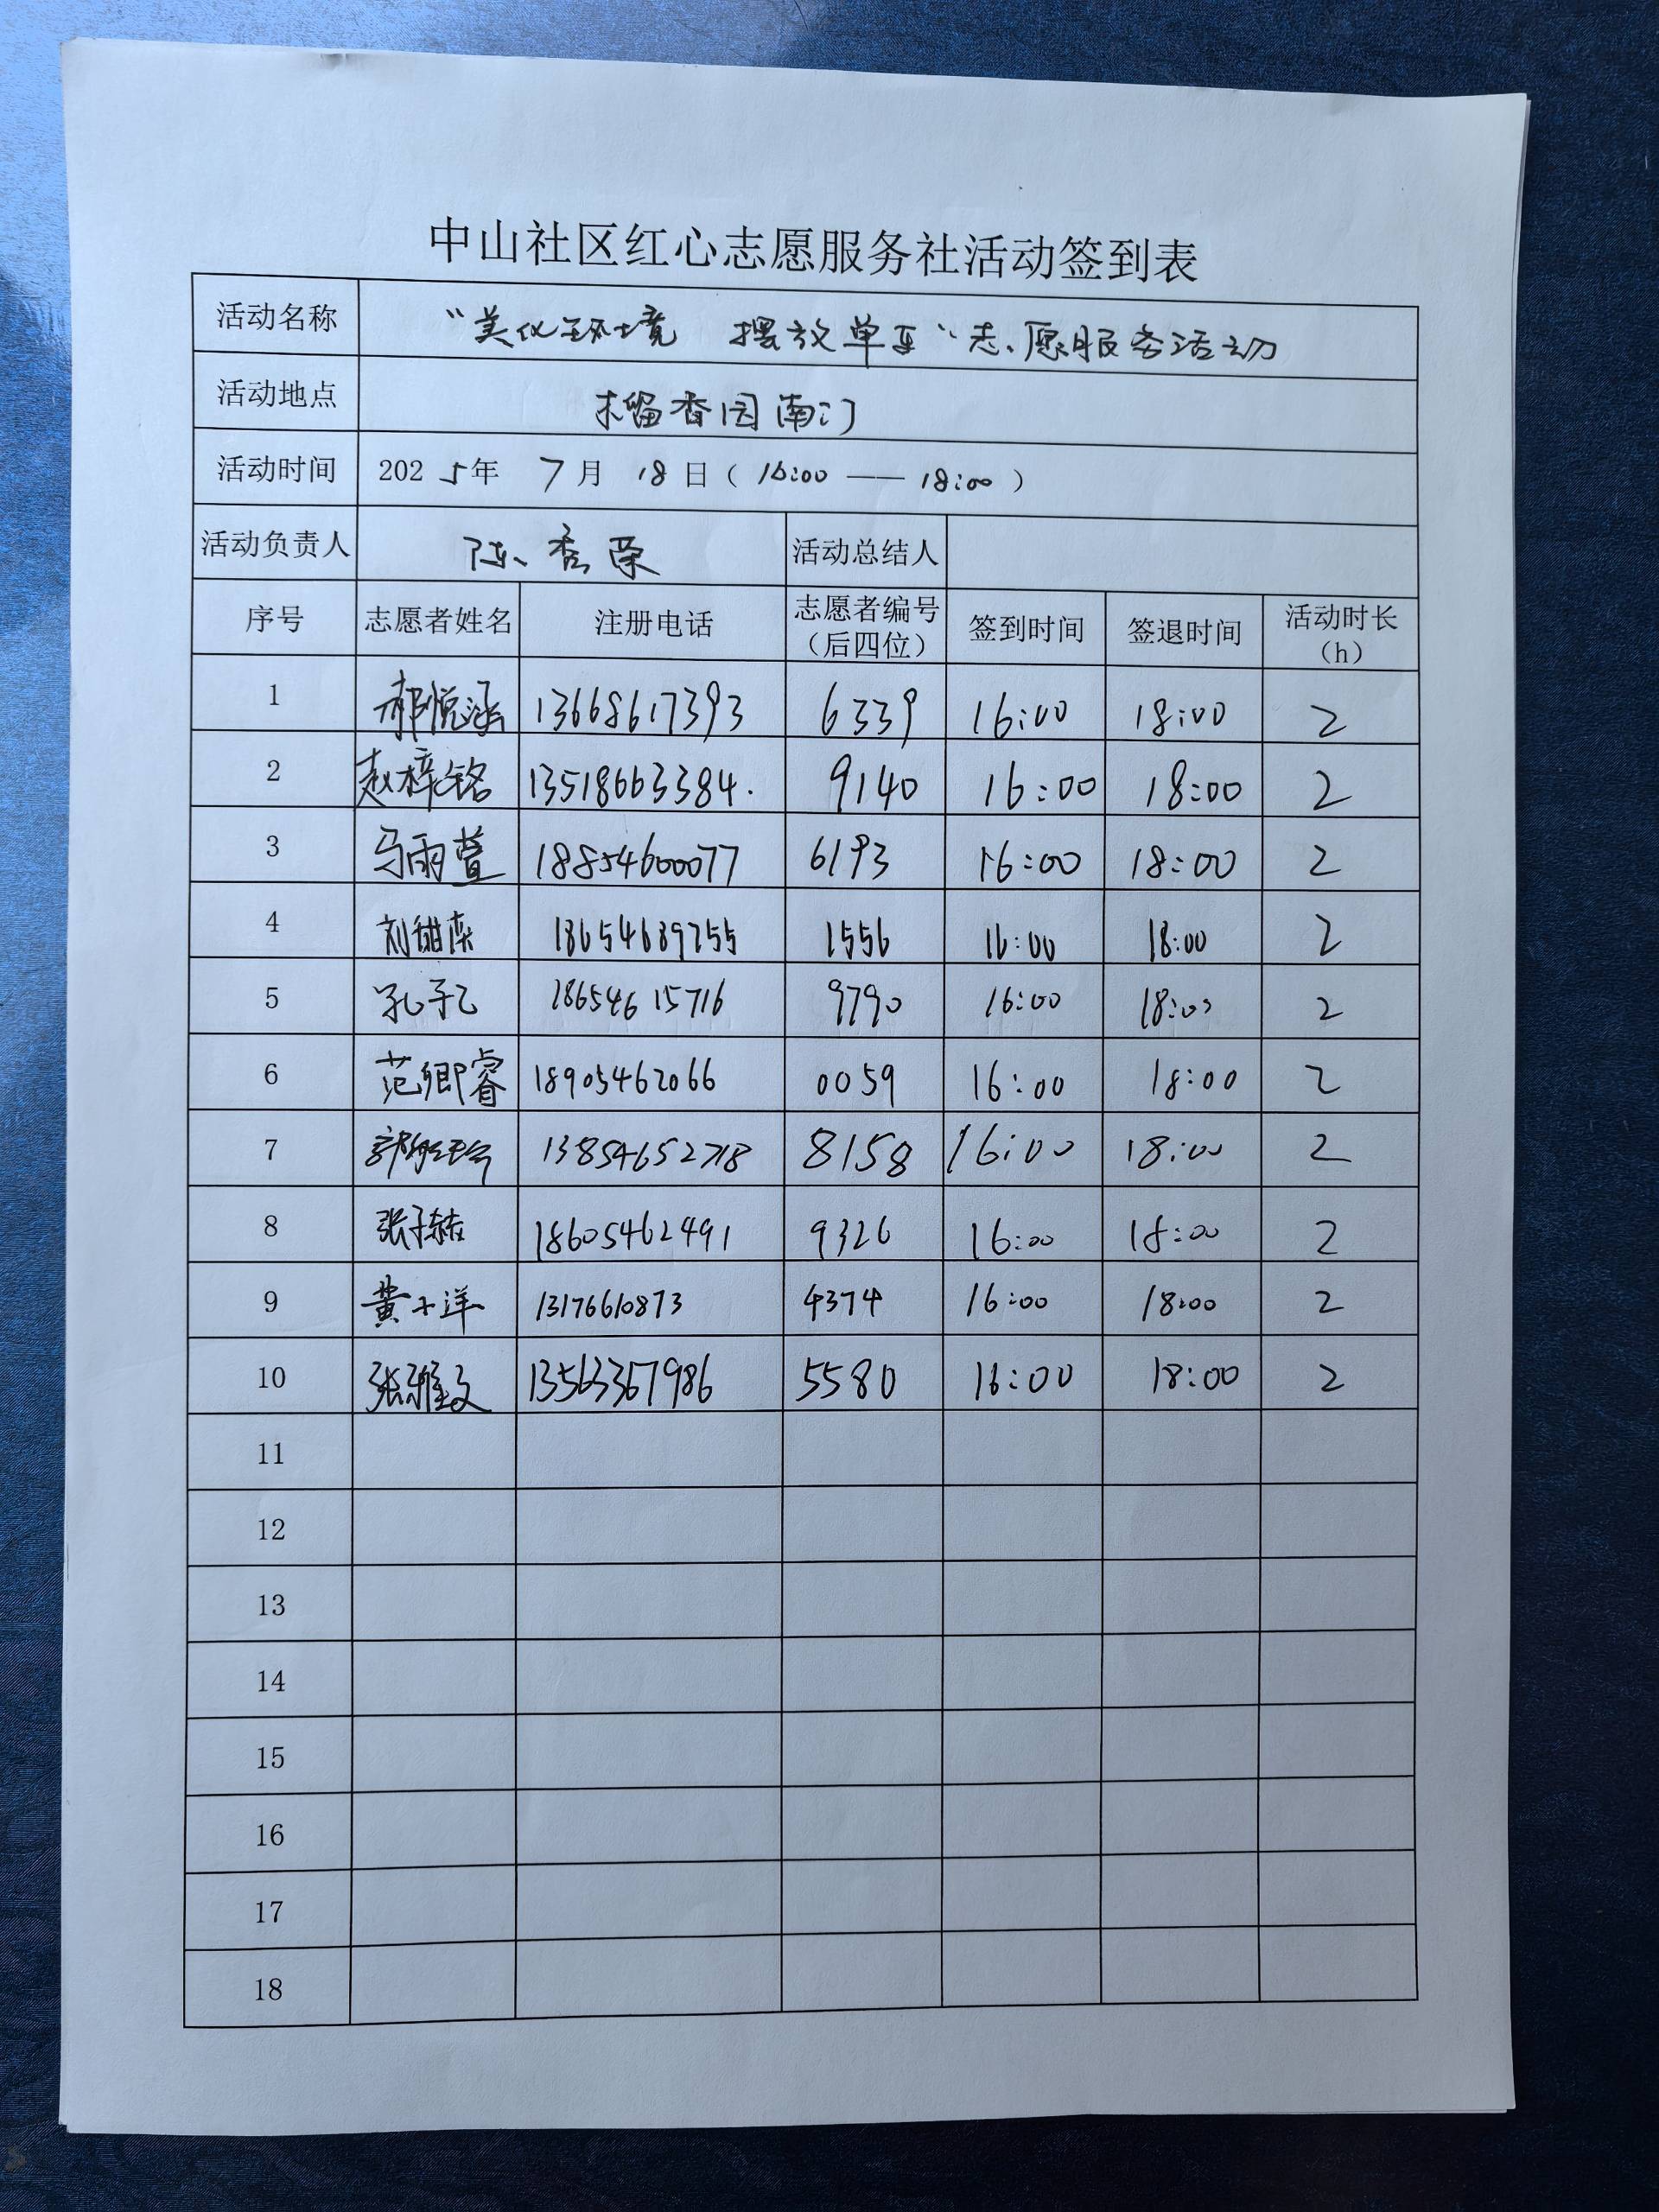 中山社区红心志愿服务社活动签到表
活动名称 “美化环境 摆放单车”志愿服务活动
活动地点 榴香园南门
活动时间 2025年 7月 18日（16:00 —— 18:00）
活动负责人 陈秀荣 活动总结人
序号 志愿者姓名 注册电话 志愿者编号（后四位） 签到时间 签退时间 活动时长（h）
1 郝悦涵 13668617393 6339 16:00 18:00 2
2 赵梓铭 13518663384. 9140 16:00 18:00 2
3 马雨萱 18854600077 6193 16:00 18:00 2
4 刘甜 18654689755 1556 16:00 18:00 2
5 孔子乙 18654615716 9790 16:00 18:00 2
6 范卿睿 18905462066 0059 16:00 18:00 2
7 13854652718 8158 16:00 18:00 2
8 张子 18605462491 9326 16:00 18:00 2
9 黄子洋 13176610873 4374 16:00 18:00 2
10 张雅文 13563367986 5580 16:00 18:00 2
11
12
13
14
15
16
17
18